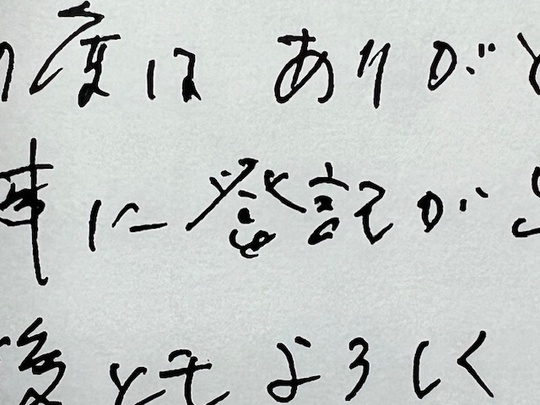 の度は ありがと
事に登記が
後ともよろしく